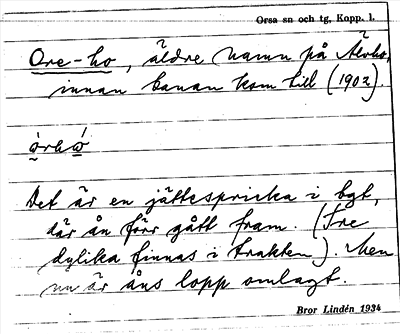 Orsa sn och tg, Kopp. l.
Ore-ho, äldre namn på Älvho,
innan banan kom till (1902).
órhó
Det är en jättespricka i bgt,
där ån förr gått fram. (Tre
dylika finnas i trakten). Men
nu är åns lopp omlagt.
Bror Lindén 1934